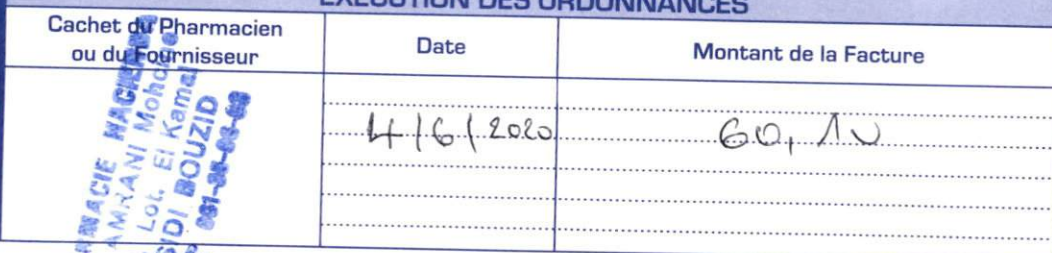 EXECUTION DES ORDONNANCES
Cachet du Pharmacien
ou du Fournisseur
Date
Montant de la Facture
AMRANI
Lot. El Kamal
SIDI BOUZID
4/6/2020
60,10